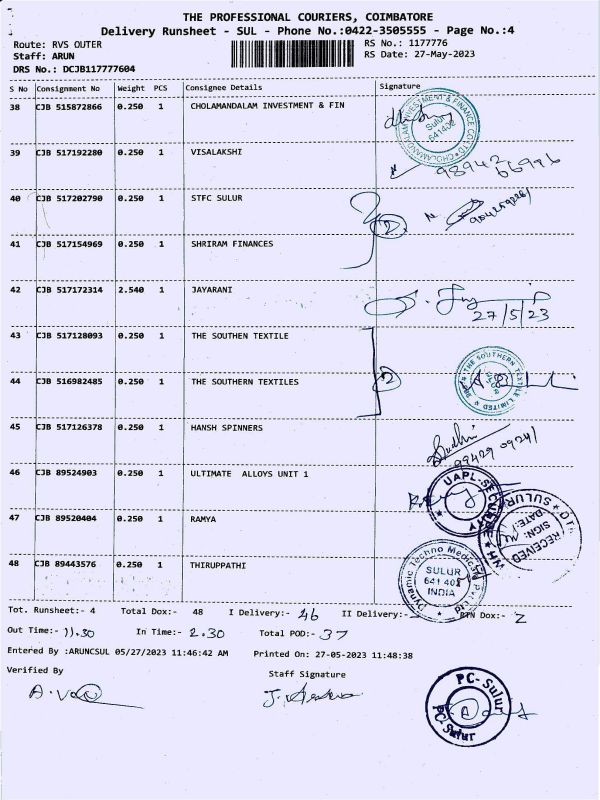 THE PROFESSIONAL COURIERS, COIMBATORE
Delivery Runsheet - SUL - Phone No.:0422-3505555 - Page No.:4
Route: RVS OUTER RS No.: 1177776
Staff: ARUN RS Date: 27-May-2023
DRS No.: DCJB117777604
S No Consignment No Weight PCS Consignee Details Signature
38 CJB 515872866 0.250 1 CHOLAMANDALAM INVESTMENT & FIN
CHOLAMANDALAM INVESTMENT & FINANCE CO LTD
Sulur
641402
39 CJB 517192280 0.250 1 VISALAKSHI
98942
66996
40 CJB 517202790 0.250 1 STFC SULUR
2
41 CJB 517154969 0.250 1 SHRIRAM FINANCES
42 CJB 517172314 2.540 1 JAYARANI
27/5/23
43 CJB 517128093 0.250 1 THE SOUTHEN TEXTILE
44 CJB 516982485 0.250 1 THE SOUTHERN TEXTILES
2
THE SOUTHERN TEXTILE LIMITED
45 CJB 517126378 0.250 1 HANSH SPINNERS
99429 09241
46 CJB 89524903 0.250 1 ULTIMATE ALLOYS UNIT 1
UAPL-SECURITY
47 CJB 89520404 0.250 1 RAMYA
SULUR
RECEIVED
SIGN:
DATE:
48 CJB 89443576 0.250 1 THIRUPPATHI
Dynamic Techno Medicals Pvt Ltd
SULUR
641 402
INDIA
Tot. Runsheet:- 4 Total Dox:- 48 I Delivery:- 46 II Delivery:- RTN Dox:- 2
Out Time:- 11.30 In Time:- 2.30 Total POD:- 37
Entered By :ARUNCSUL 05/27/2023 11:46:42 AM Printed On: 27-05-2023 11:48:38
Verified By Staff Signature
PC-Sulur
PC-Sulur